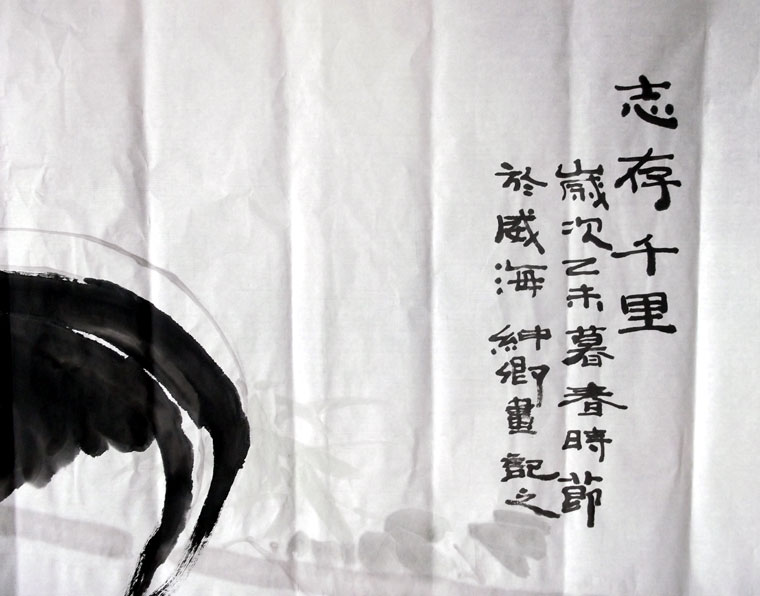 志存千里
歲次乙未暮春時節
於威海 紳鄉畫記之